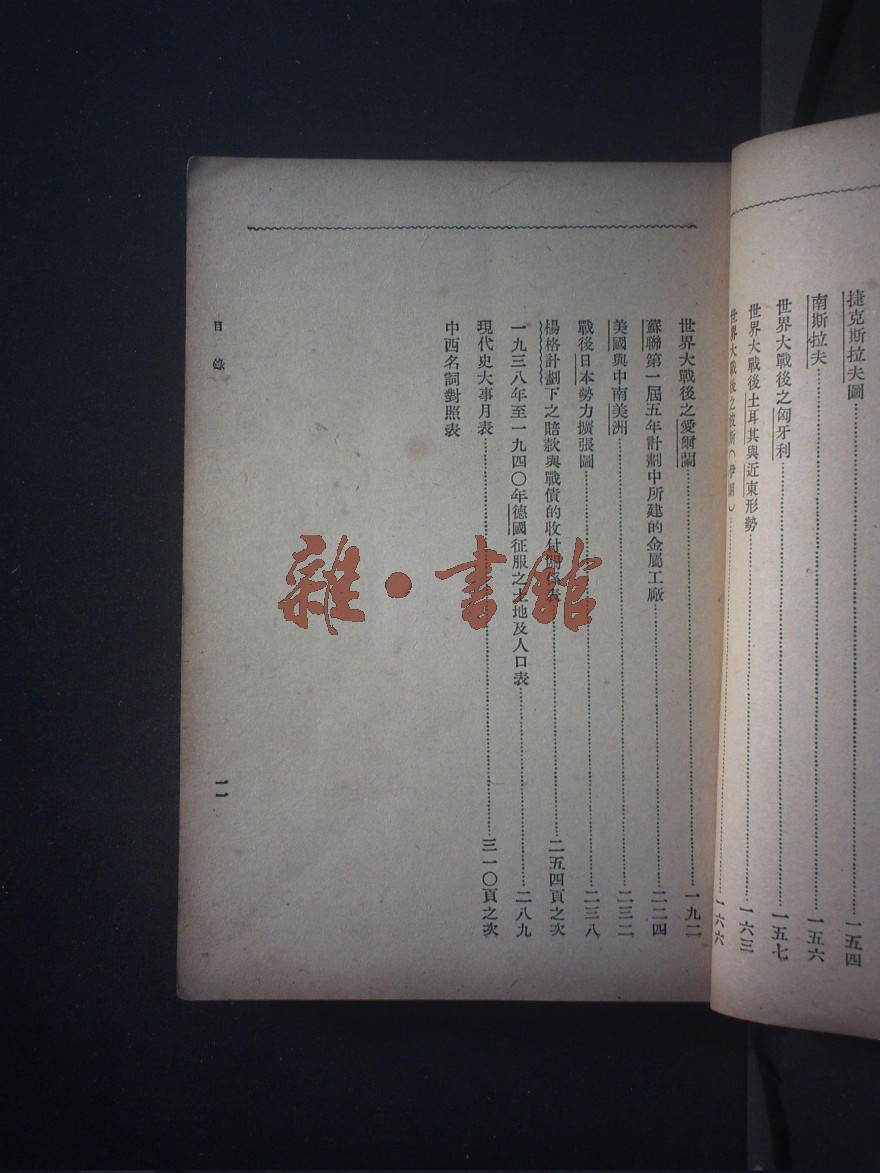 捷克斯拉夫圖……一五四
南斯拉夫……一五六
世界大戰後之匈牙利……一五七
世界大戰後土耳其與近東形勢……一六三
世界大戰後之波斯（伊朗）……一六六
世界大戰後之愛爾蘭……一九二
蘇聯第一屆五年計劃中所建的金屬工廠……二二四
美國與中南美洲……二三二
戰後日本勢力擴張圖……二三八
楊格計劃下之賠款與戰債的收付關係表……二五四頁之次
一九三八年至一九四〇年德國征服之土地及人口表……二八九
現代史大事月表……三一〇頁之次
中西名詞對照表
目錄
一一
雜·書館